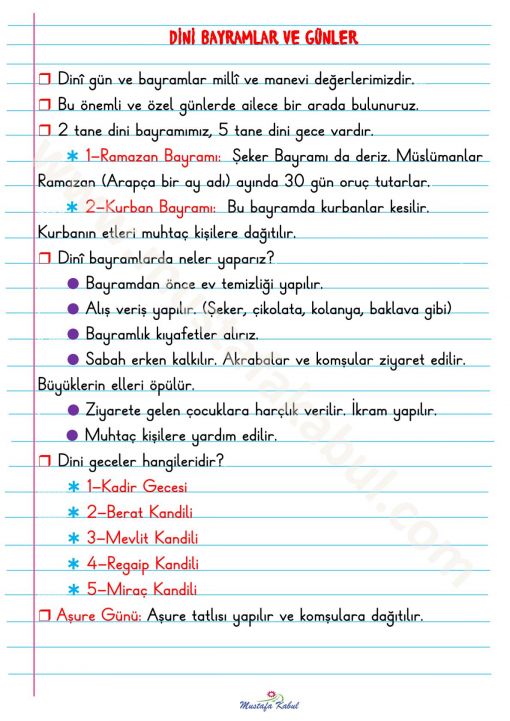 DİNİ BAYRAMLAR VE GÜNLER
❒ Dinî gün ve bayramlar millî ve manevi değerlerimizdir.
❒ Bu önemli ve özel günlerde ailece bir arada bulunuruz.
❒ 2 tane dini bayramımız, 5 tane dini gece vardır.
∗ 1-Ramazan Bayramı: Şeker Bayramı da deriz. Müslümanlar
Ramazan (Arapça bir ay adı) ayında 30 gün oruç tutarlar.
∗ 2-Kurban Bayramı: Bu bayramda kurbanlar kesilir.
Kurbanın etleri muhtaç kişilere dağıtılır.
❒ Dinî bayramlarda neler yaparız?
● Bayramdan önce ev temizliği yapılır.
● Alış veriş yapılır. (Şeker, çikolata, kolanya, baklava gibi)
● Bayramlık kıyafetler alırız.
● Sabah erken kalkılır. Akrabalar ve komşular ziyaret edilir.
Büyüklerin elleri öpülür.
● Ziyarete gelen çocuklara harçlık verilir. İkram yapılır.
● Muhtaç kişilere yardım edilir.
❒ Dini geceler hangileridir?
∗ 1-Kadir Gecesi
∗ 2-Berat Kandili
∗ 3-Mevlit Kandili
∗ 4-Regaip Kandili
∗ 5-Miraç Kandili
❒ Aşure Günü: Aşure tatlısı yapılır ve komşulara dağıtılır.
www.mustafakabul.com
Mustafa Kabul